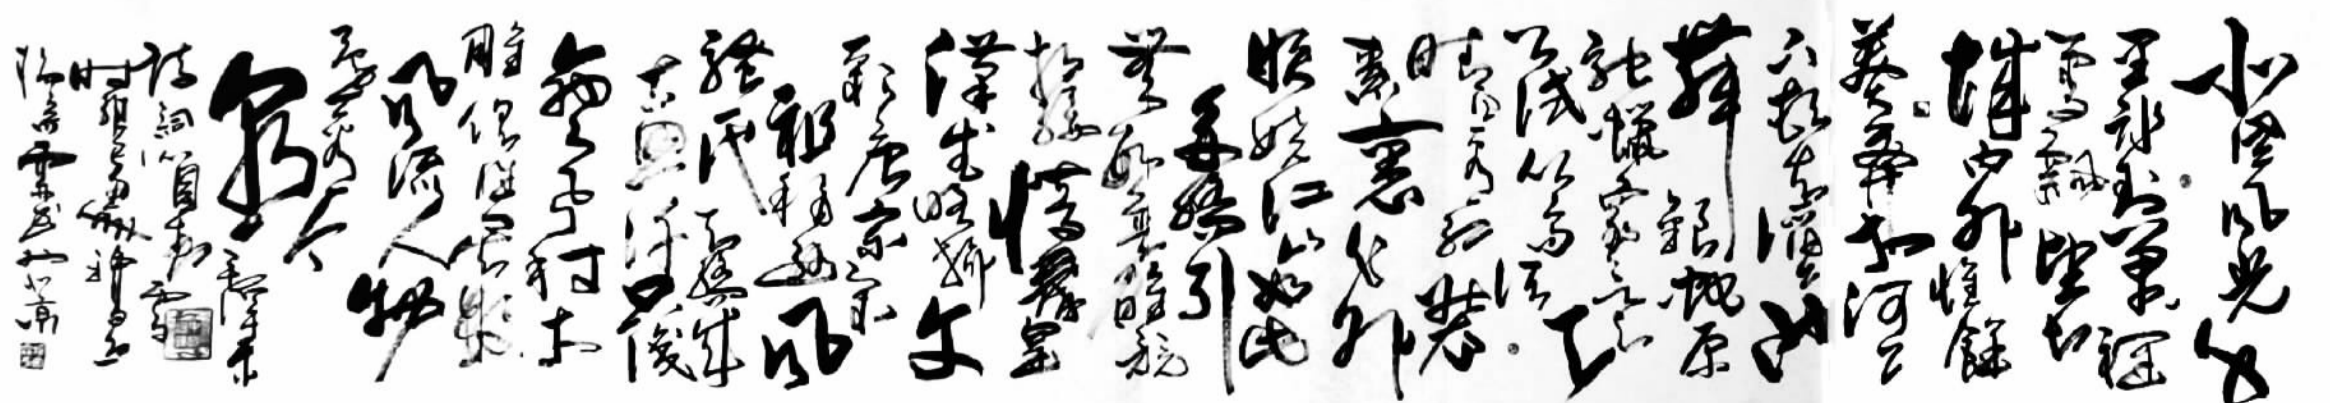 北國風光千
里冰封萬里
雪飄望長
城内外惟餘
莽莽大河上
下頓失滔滔山
舞銀蛇原
馳蠟象欲與天
公試比高須
晴日看紅裝
素裹分外
妖嬈江山如此
多嬌引
無數英雄競
折腰惜秦皇
漢武略輸文
彩唐宗宋
祖稍遜風
騷一代天驕成
吉思汗只識
彎弓射大
雕俱往矣數
風流人物
還看今
朝 毛澤東
詩詞沁園春雪
時
於北京